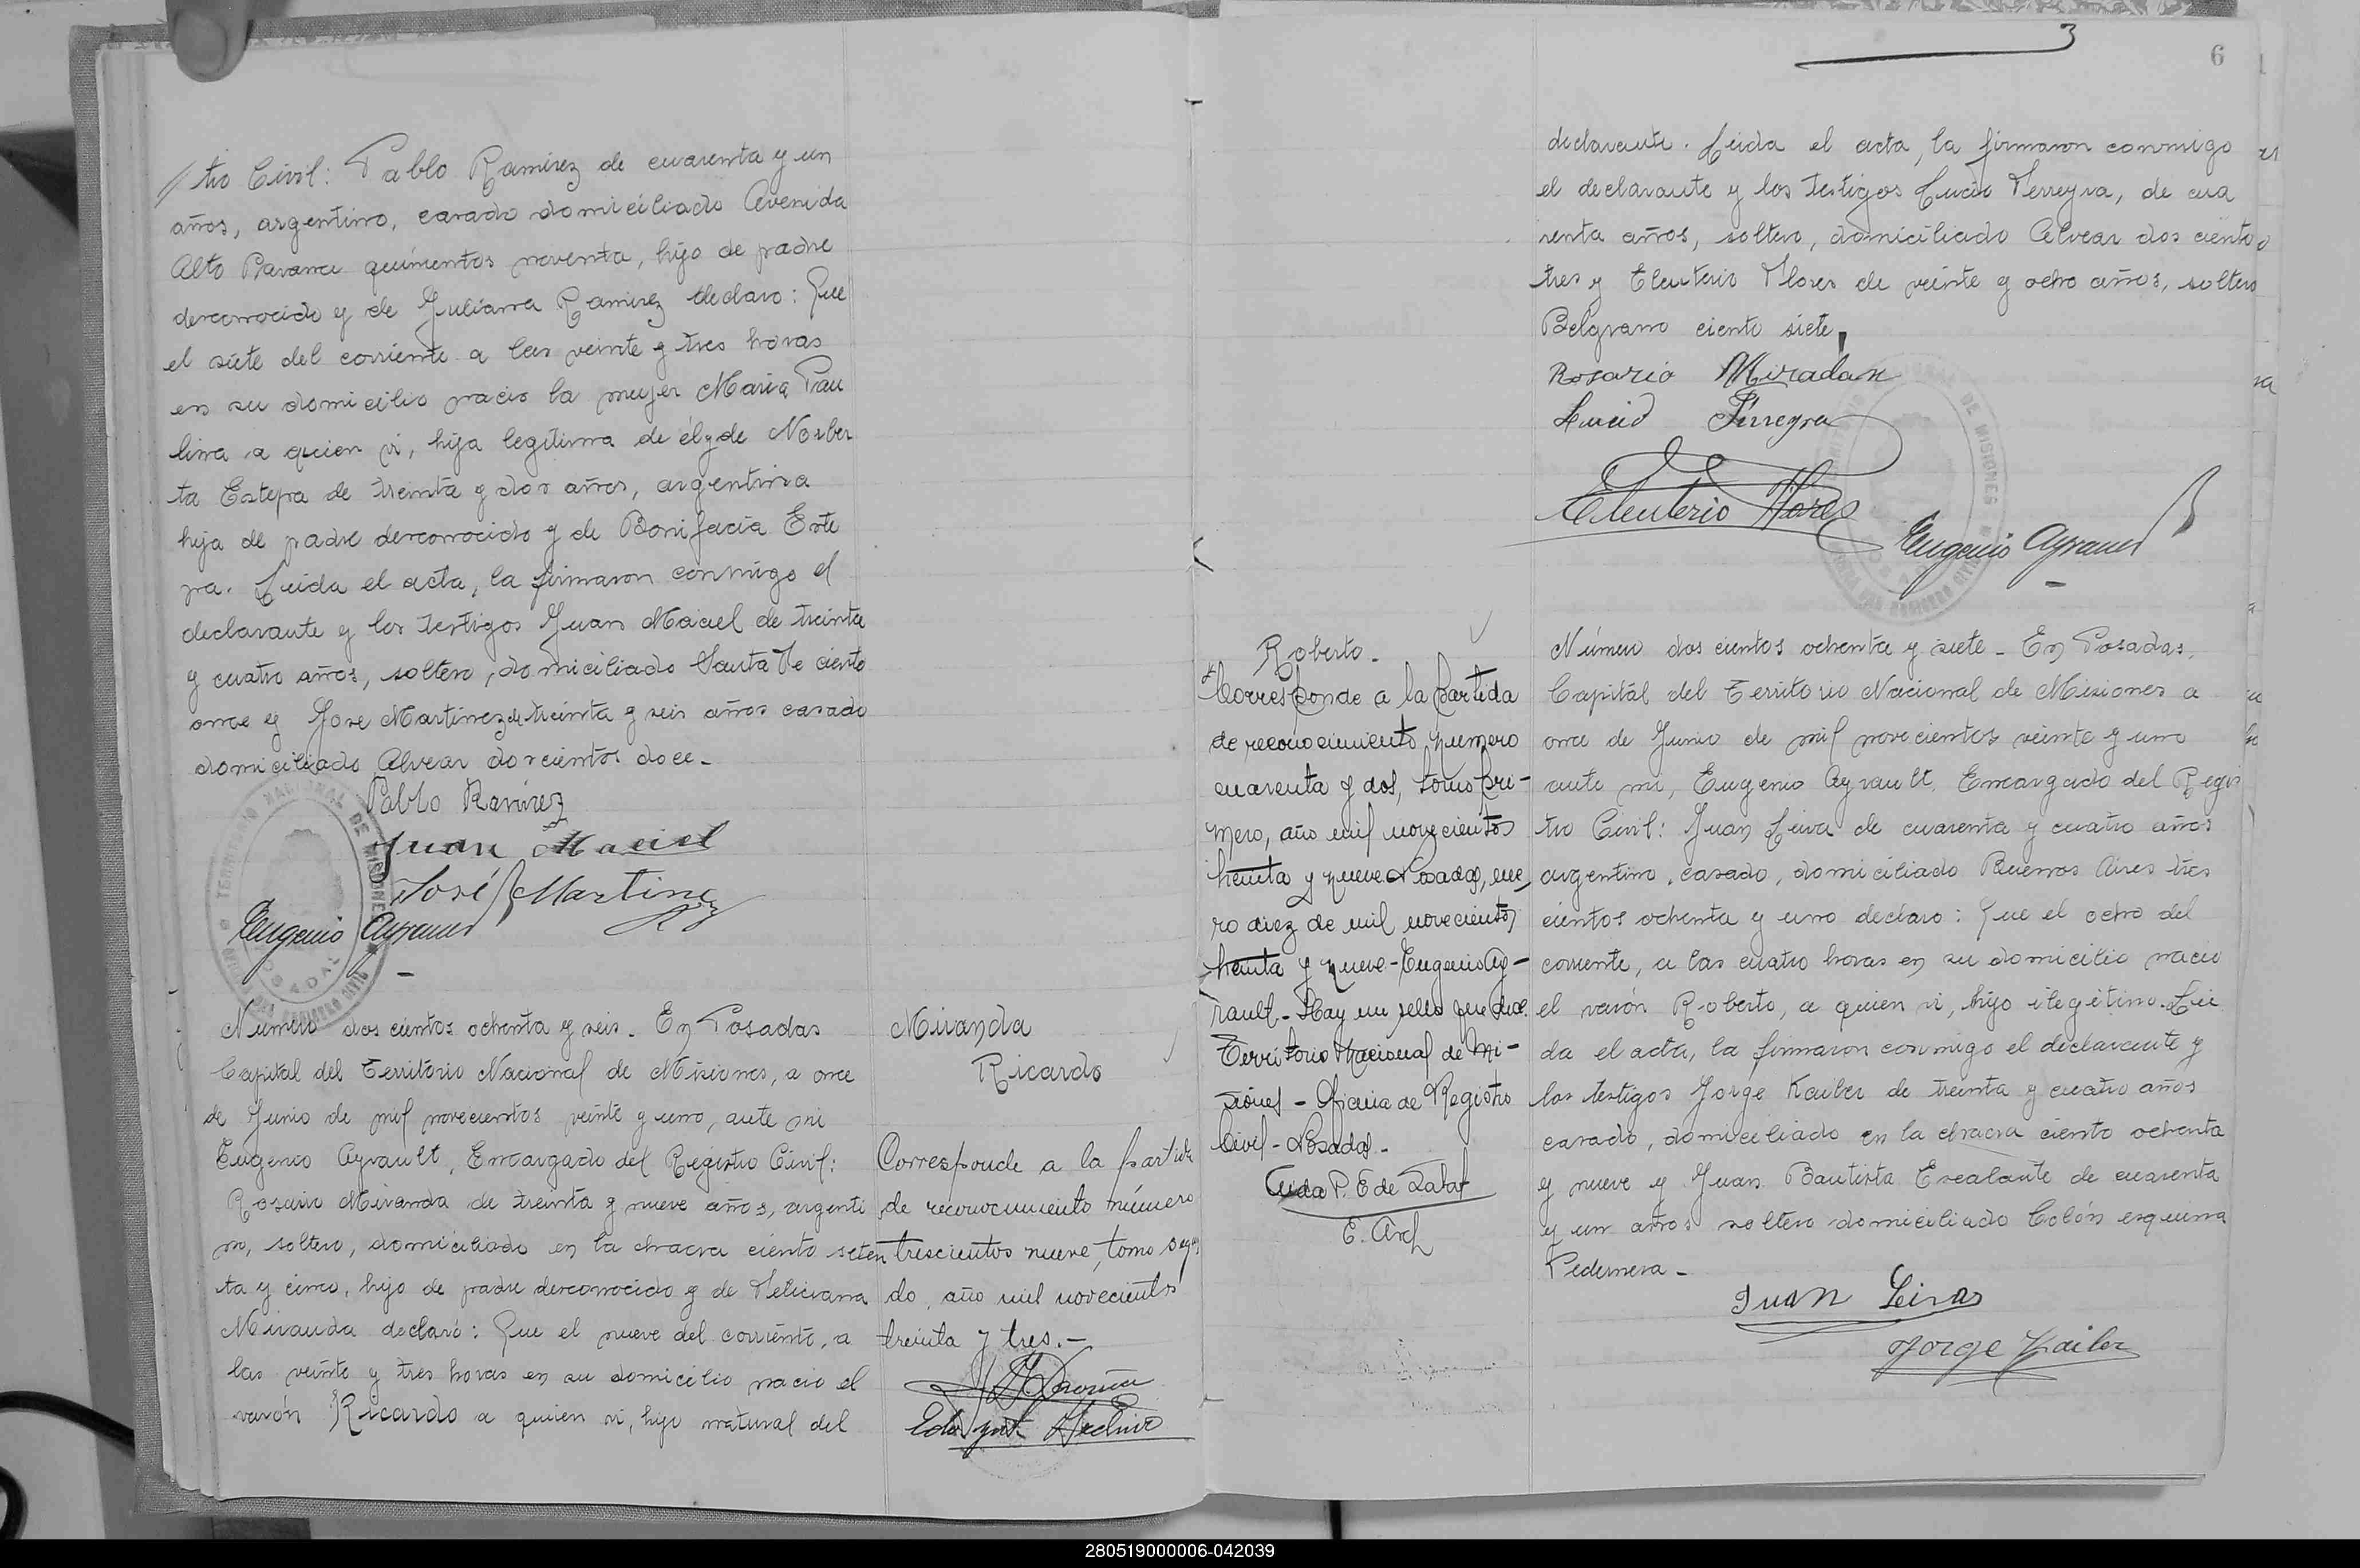 tro Civil: Pablo Ramirez de cuarenta y un
años, argentino, casado domiciliado Avenida
Alto Parana quinientos noventa, hijo de padre
desconocido y de Juliana Ramirez declaro: Que
el siete del corriente a las veinte y tres horas
en su domicilio nacio la mujer Maria Pau
lina a quien vi, hija legitima de él y de Norber
ta Estepa de treinta y dos años, argentina
hija de padre desconocido y de Bonifacia Este
pa. Leida el acta, la firmaron conmigo el
declarante y los testigos Juan Maciel de treinta
y cuatro años, soltero, domiciliado Santa Fe ciento
once y Jose Martinez de treinta y seis años casado
domiciliado Alvear doscientos doce.
Pablo Ramirez
Juan Maciel
José Martinez
Eugenio Ayrault
TERRITORIO NACIONAL DE MISIONES
POSADAS
Numero dos cientos ochenta y seis. En Posadas
Capital del Territorio Nacional de Misiones, a once
de Junio de mil novecientos veinte y uno, ante mi
Eugenio Ayrault, Encargado del Registro Civil:
Rosario Miranda de treinta y nueve años, argenti
no, soltero, domiciliado en la chacra ciento seten
ta y cinco, hijo de padre desconocido y de Feliciana
Miranda declaró: Que el nueve del corriente, a
las veinte y tres horas en su domicilio nacio el
varón Ricardo a quien vi, hijo natural del
Miranda
Ricardo
Corresponde a la partida
de reconocimiento número
trescientos nueve, tomo segun
do, año mil novecientos
treinta y tres.-
6
declarante. Leida el acta, la firmaron conmigo
el declarante y los testigos Lucio Ferreyra, de cua
renta años, soltero, domiciliado Alvear dos ciento
tres y Eleuterio Flores de veinte y ocho años, soltero
Belgrano ciento siete.
Rosario Miradan
Lucio Firregra
Eleuterio Flores
Eugenio Ayrault
Roberto.
Corresponde a la partida
de reconocimiento numero
cuarenta y dos, tomo pri-
mero, año mil novecientos
treinta y nueve Posadas, ene
ro diez de mil novecientos
treinta y nueve - Eugenio Ay-
rault - Hay un sello que dice
Territorio Nacional de Mi-
siones - Oficina de Registro
Civil - Posadas.-
Número dos cientos ochenta y siete. En Posadas,
Capitál del Territorio Nacional de Misiones a
once de Junio de mil novecientos veinte y uno
ante mi, Eugenio Ayrault, Encargado del Regis
tro Civil: Juan Leiva de cuarenta y cuatro años
argentino, casado, domiciliado Buenos Aires tres
cientos ochenta y uno declaro: Que el ocho del
corriente, a las cuatro horas en su domicilio nacio
el varón Roberto, a quien vi, hijo ilegitimo. Lei
da el acta, la firmaron conmigo el declarante y
los testigos Jorge Kailer de treinta y cuatro años
casado, domiciliado en la chacra ciento ochenta
y nueve y Juan Bautista Escalante de cuarenta
y un años soltero domiciliado Colón esquina
Pedernera -
Juan Leivas
Jorge Kailer
280519000006-042039